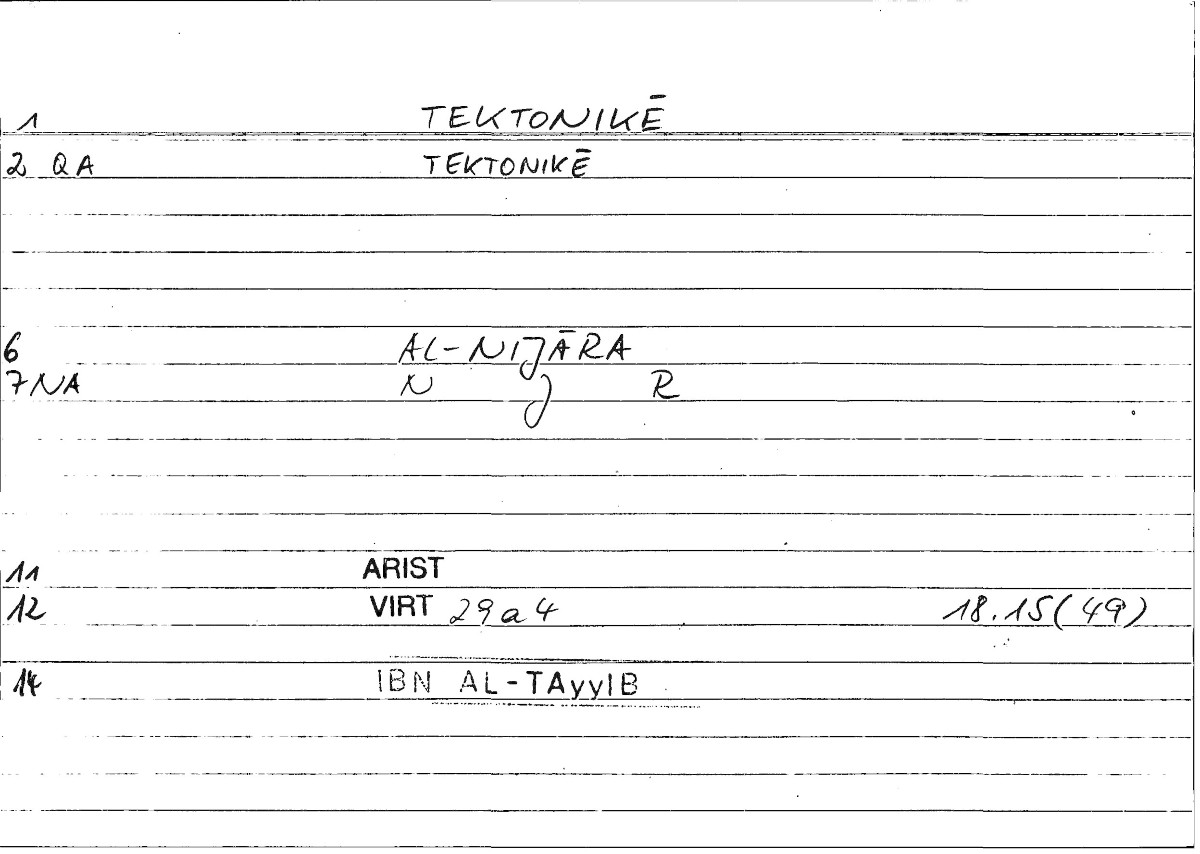 1 TEKTONIKĒ
2 QA TEKTONIKĒ
6 AL-NIJĀRA
7 NA N J R
11 ARIST
12 VIRT 29a4 18.15(49)
14 IBN AL-TAyyIB